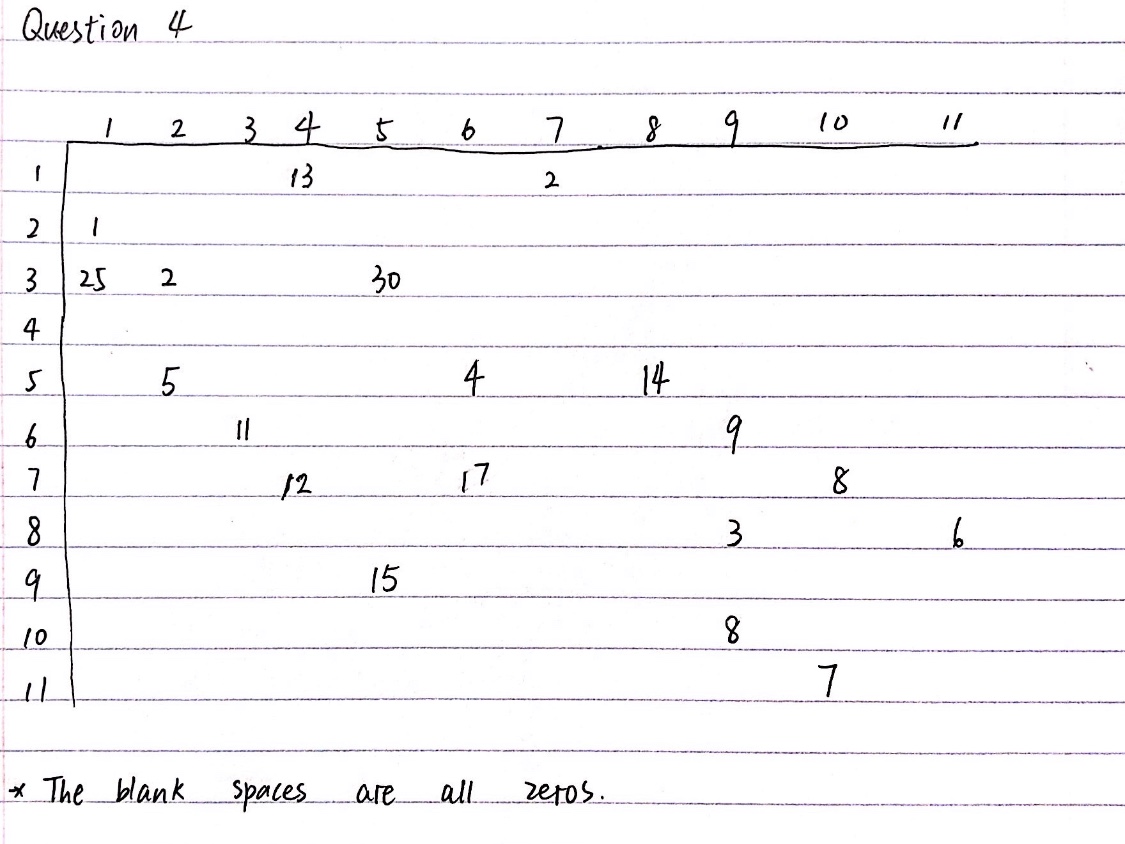 Question 4
1 2 3 4 5 6 7 8 9 10 11
1 13 2
2 1
3 25 2 30
4
5 5 4 14
6 11 9
7 12 17 8
8 3 6
9 15
10 8
11 7
* The blank spaces are all zeros.